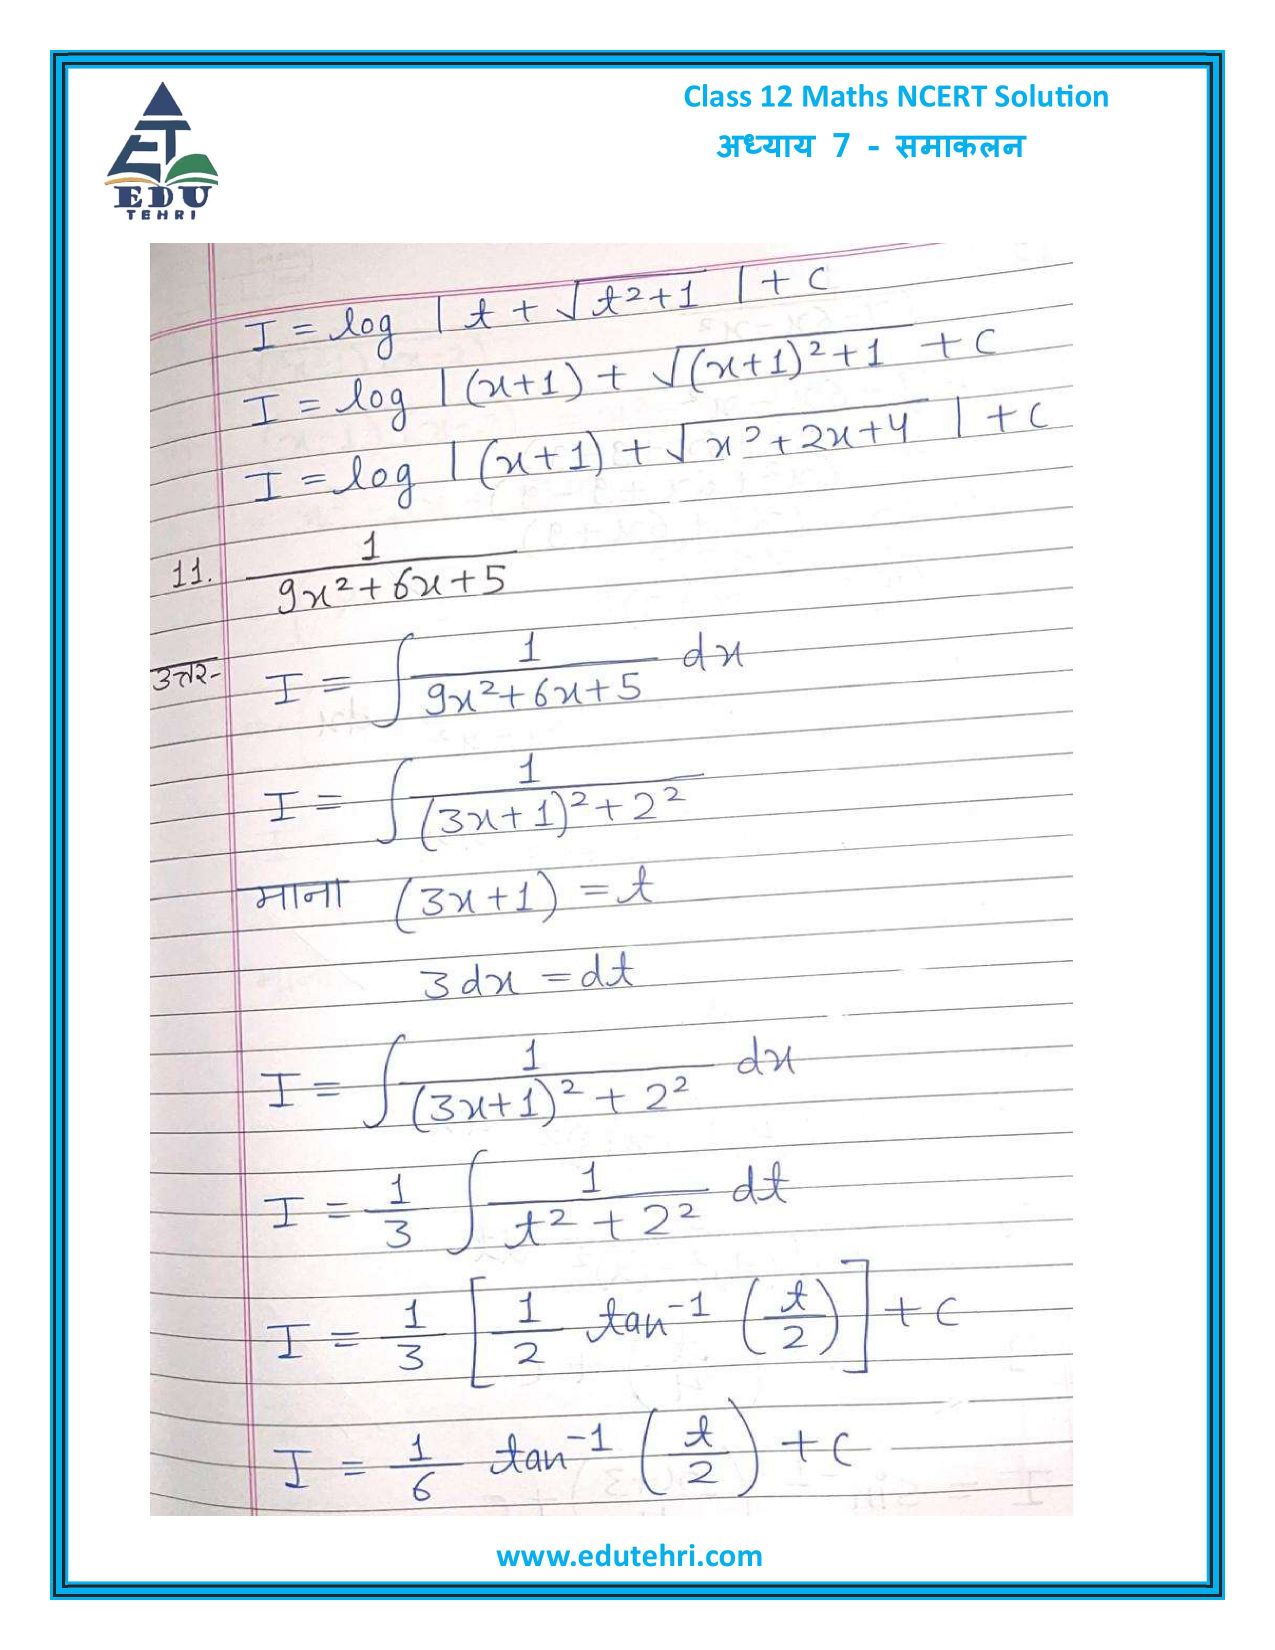 Class 12 Maths NCERT Solution
अध्याय 7 - समाकलन
EDU
TEHRI
I = log | t + √(t²+1) | + c
I = log | (x+1) + √((x+1)²+1) + c
I = log | (x+1) + √(x²+2x+4) | + c
11. 1/(9x²+6x+5)
उत्तर- I = ∫ 1/(9x²+6x+5) dx
I = ∫ 1/((3x+1)²+2²)
माना (3x+1) = t
3dx = dt
I = ∫ 1/((3x+1)²+2²) dx
I = 1/3 ∫ 1/(t²+2²) dt
I = 1/3 [ 1/2 tan⁻¹ (t/2) ] + c
I = 1/6 tan⁻¹ (t/2) + c
www.edutehri.com